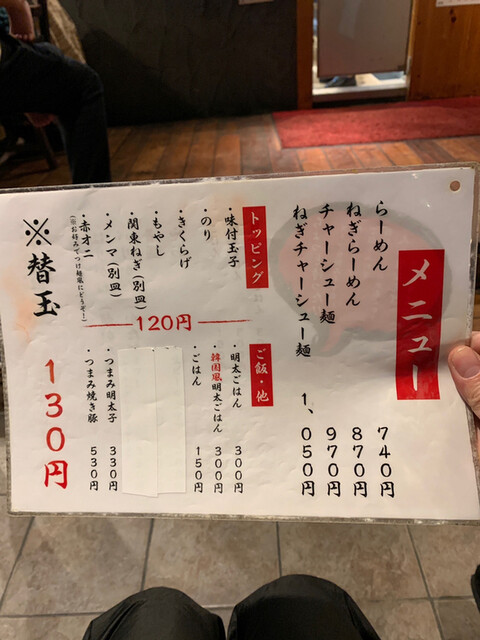 メニュー
らーめん 740円
ねぎらーめん 870円
チャーシュー麺 970円
ねぎチャーシュー麺 1、050円
トッピング
・味付玉子
・のり
・きくらげ
・もやし
・関東ねぎ(別皿)
・メンマ(別皿)
・赤オニ
(※お好みでつけ麺風にどうぞ!)
120円
ご飯・他
・明太ごはん 300円
・韓国風明太ごはん 300円
・ごはん 150円
・つまみ明太子 330円
・つまみ焼き豚 530円
※替玉 130円